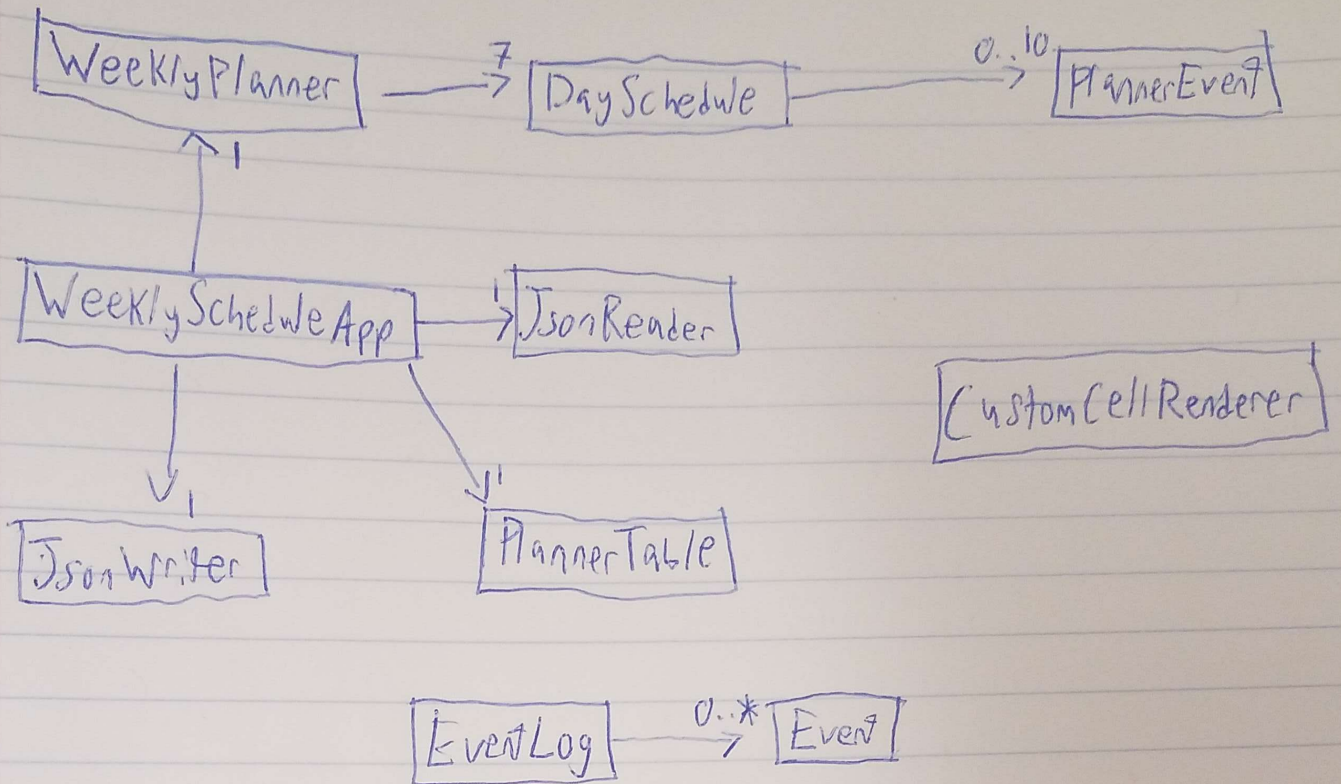 WeeklyPlanner
7
DaySchedule
0..10
PlannerEvent
1
WeeklyScheduleApp
1
JsonReader
CustomCellRenderer
1
JsonWriter
1
PlannerTable
EventLog
0..*
Event